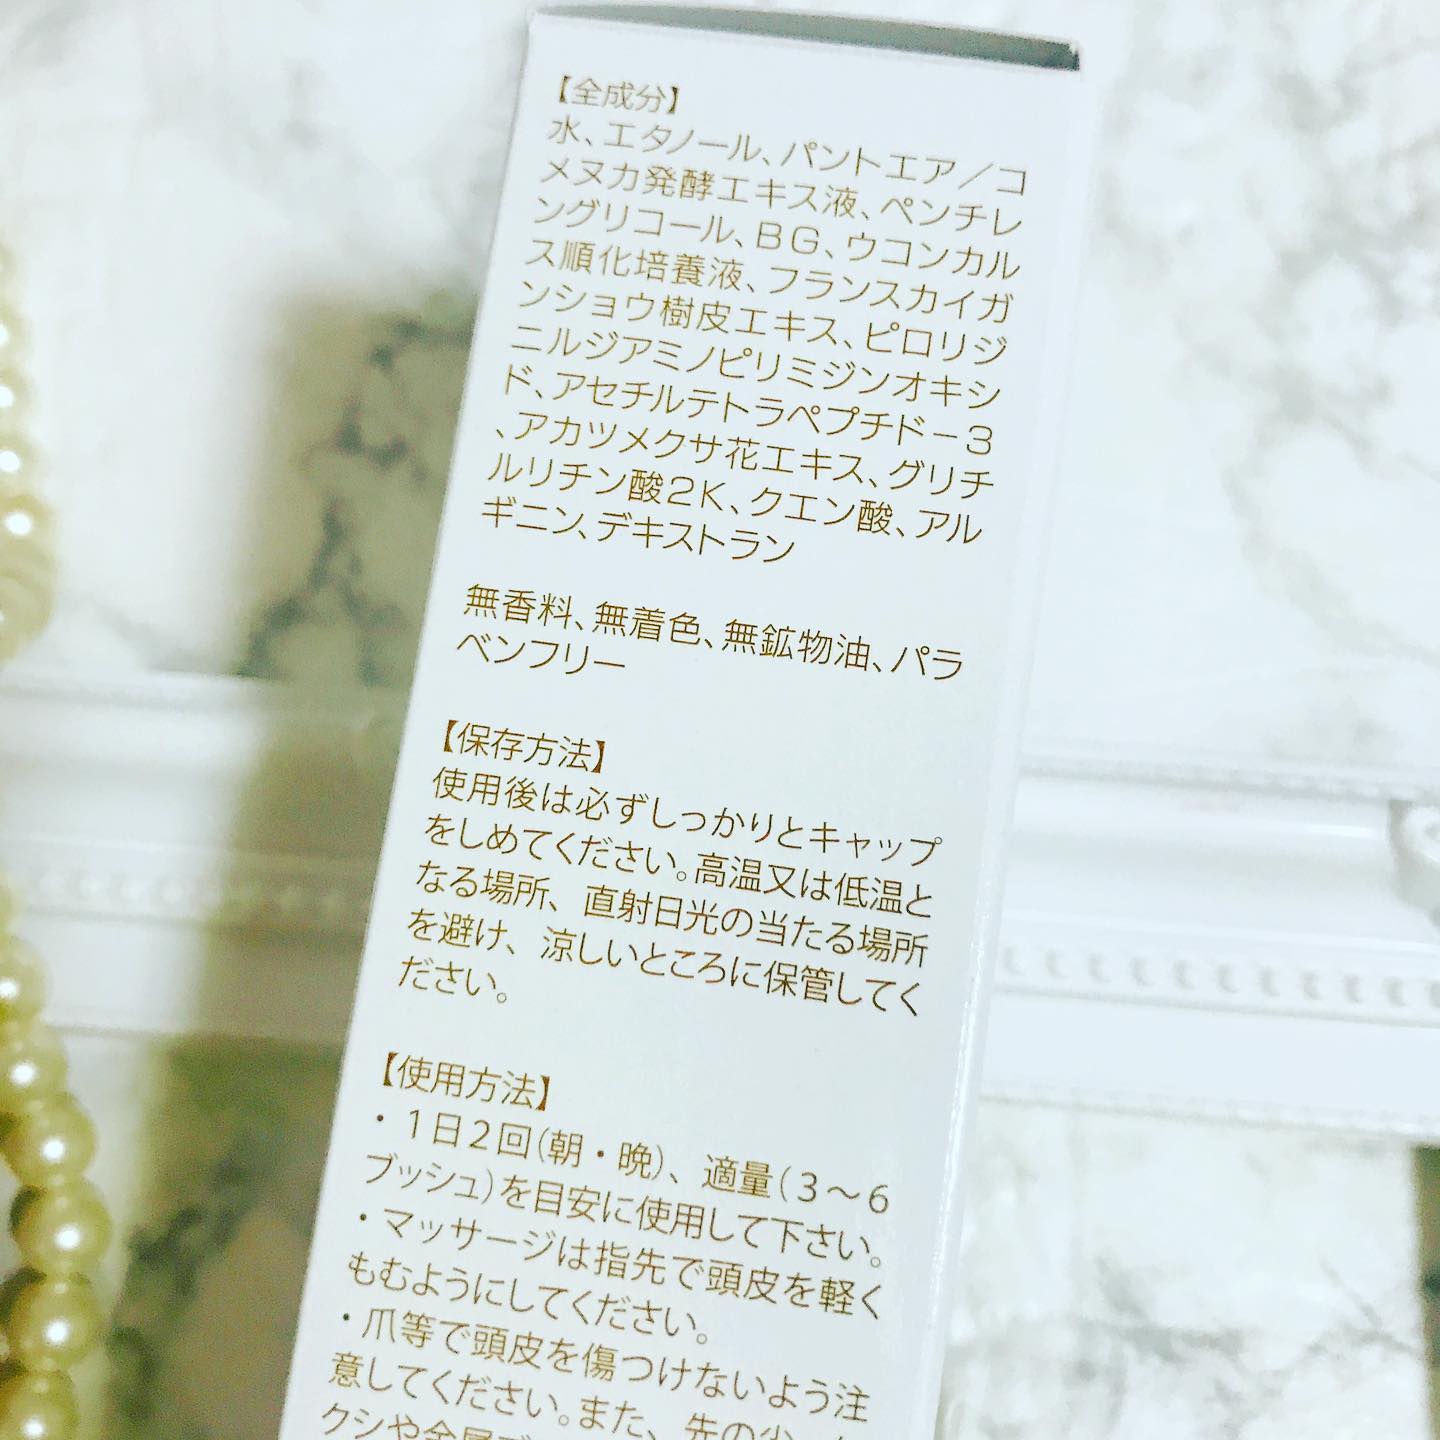 【全成分】
水、エタノール、パントエア／コ
メヌカ発酵エキス液、ペンチレ
ングリコール、BG、ウコンカル
ス順化培養液、フランスカイガ
ンショウ樹皮エキス、ピロリジ
ニルジアミノピリミジンオキシ
ド、アセチルテトラペプチド－3
、アカツメクサ花エキス、グリチ
ルリチン酸2K、クエン酸、アル
ギニン、デキストラン
無香料、無着色、無鉱物油、パラ
ベンフリー
【保存方法】
使用後は必ずしっかりとキャップ
をしめてください。高温又は低温と
なる場所、直射日光の当たる場所
を避け、涼しいところに保管してく
ださい。
【使用方法】
・1日2回（朝・晩）、適量（3〜6
プッシュ）を目安に使用して下さい。
・マッサージは指先で頭皮を軽く
もむようにしてください。
・爪等で頭皮を傷つけないよう注
意してください。また、先の尖
クシや金属ブ